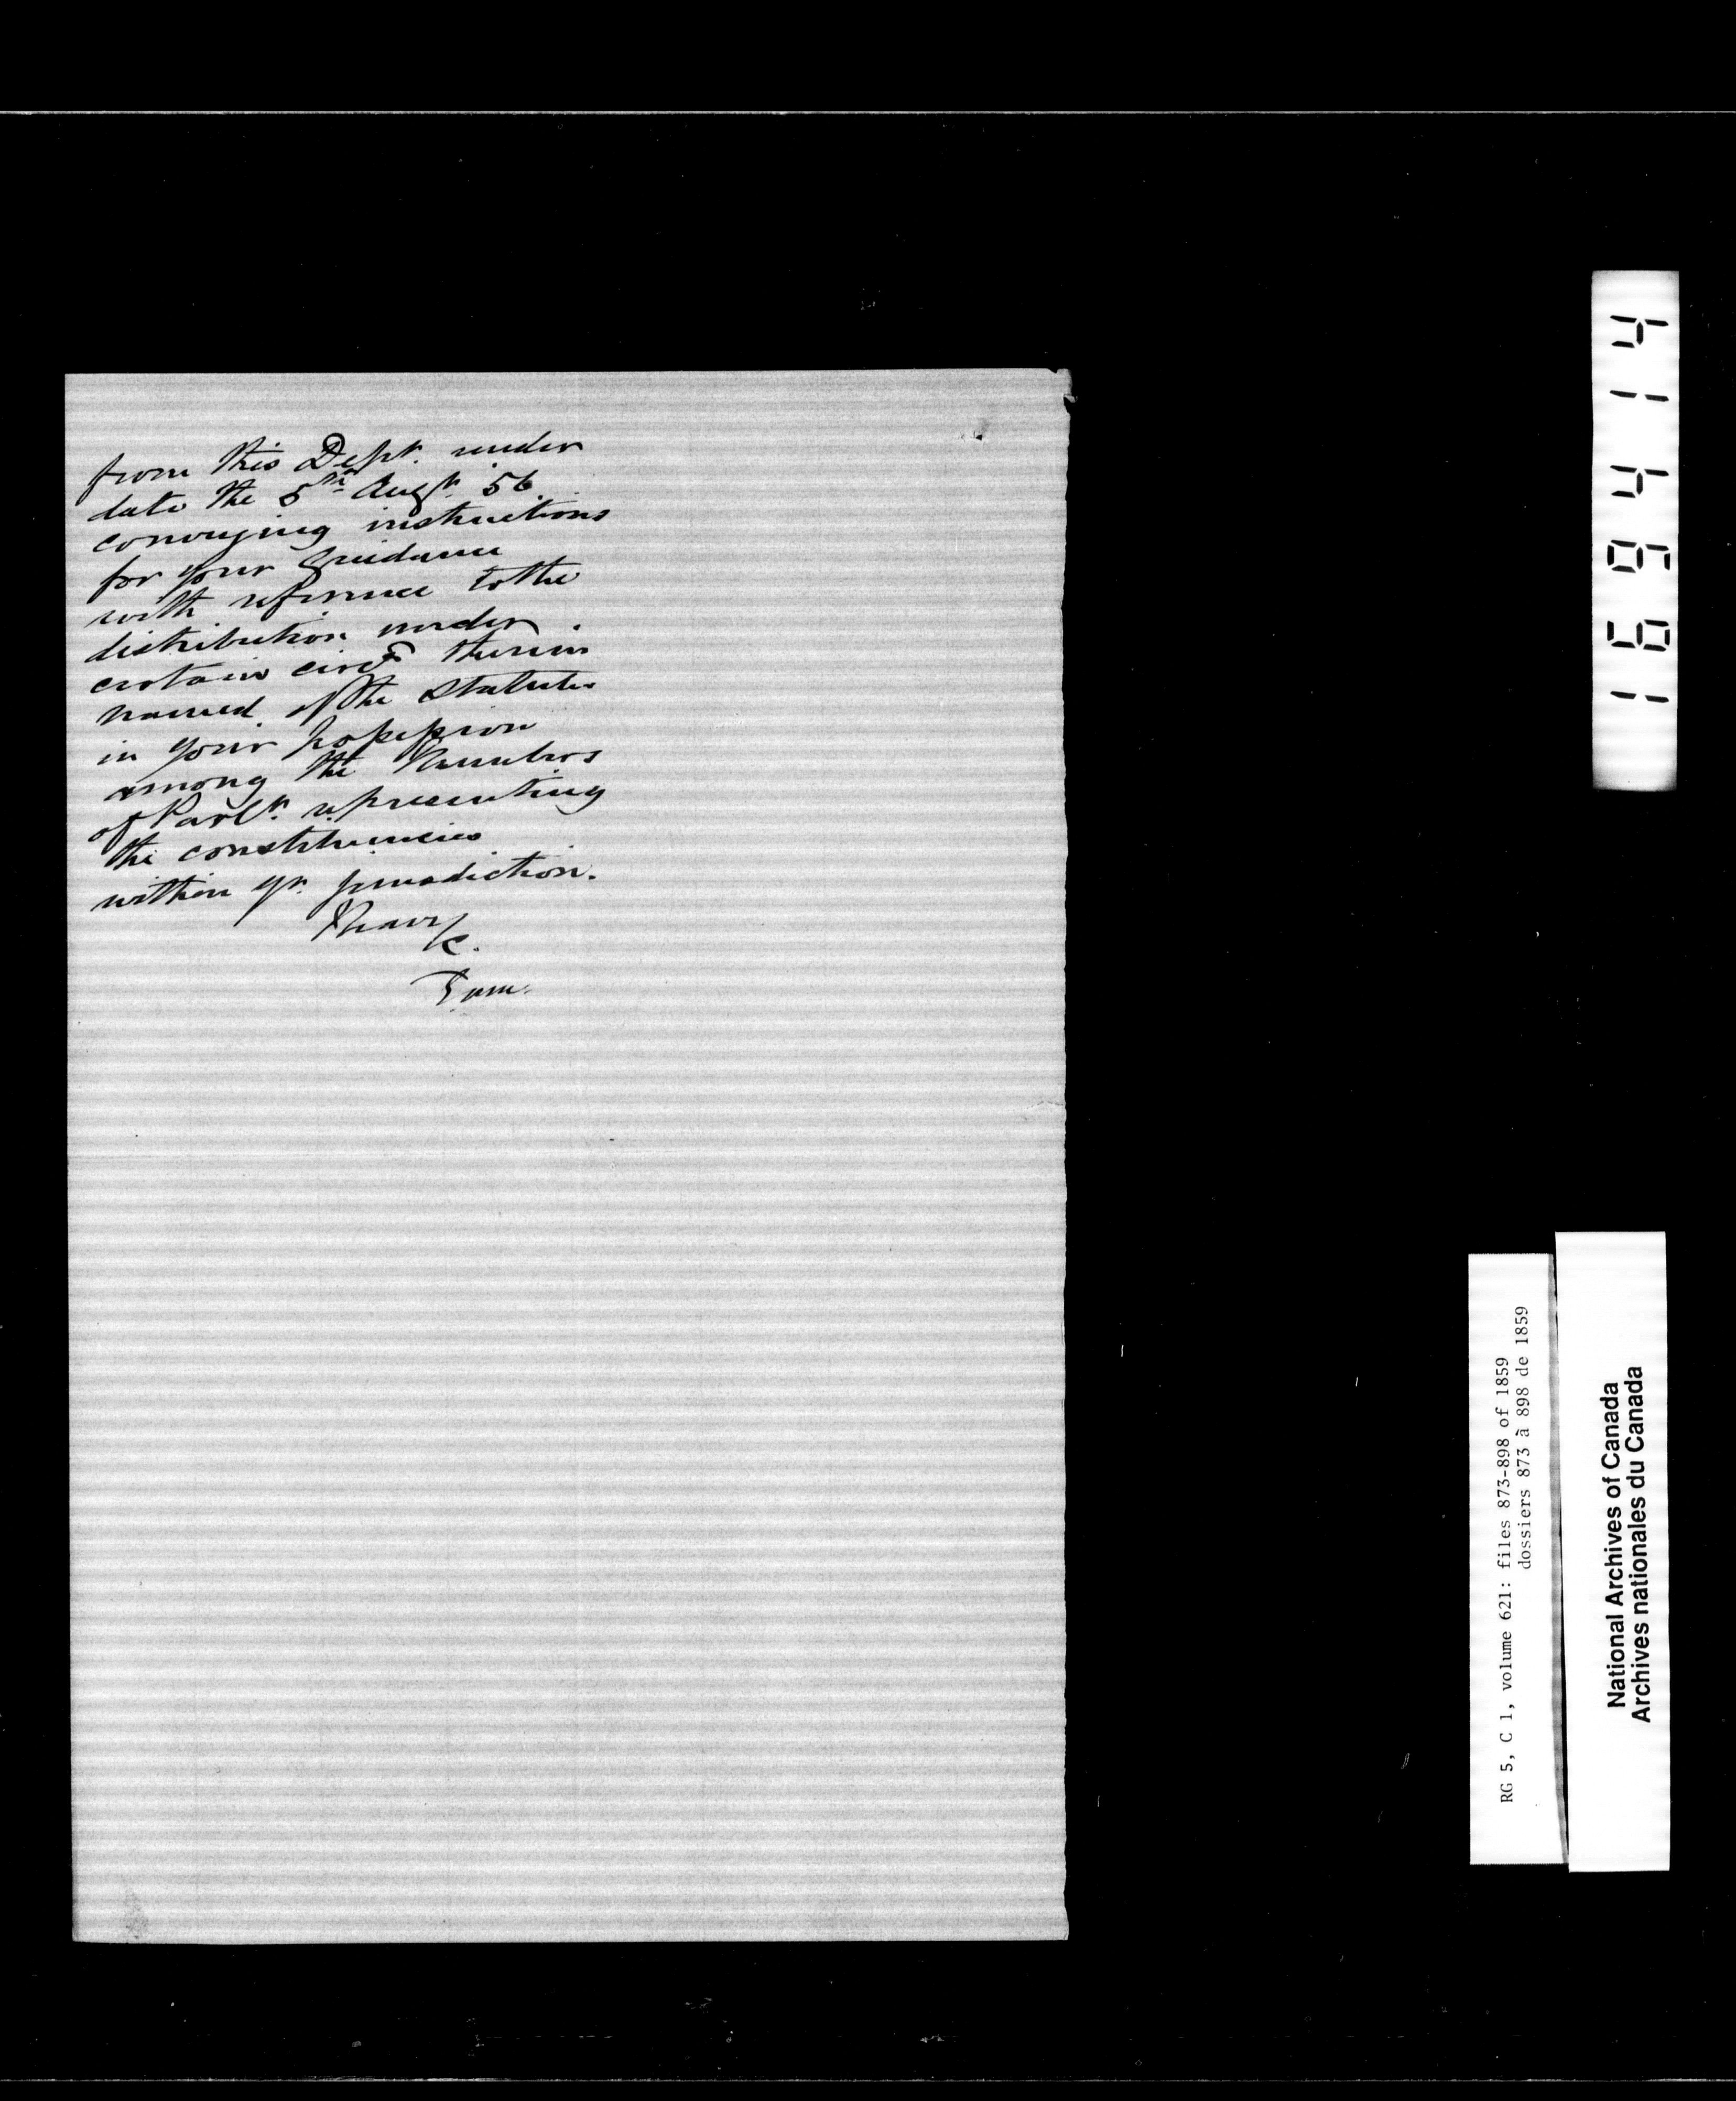 from this Dept. under
date the 5th Augt. 56
conveying instructions
for your Guidance
with reference to the
distribution under
certain circs therein
named, of the Statutes
in your possession
among the Members
of Parlt. representing
the constituencies
within yr. jurisdiction.
I have
&c.
169414
RG 5, C 1, volume 621: files 873-898 of 1859
dossiers 873 à 898 de 1859
National Archives of Canada
Archives nationales du Canada